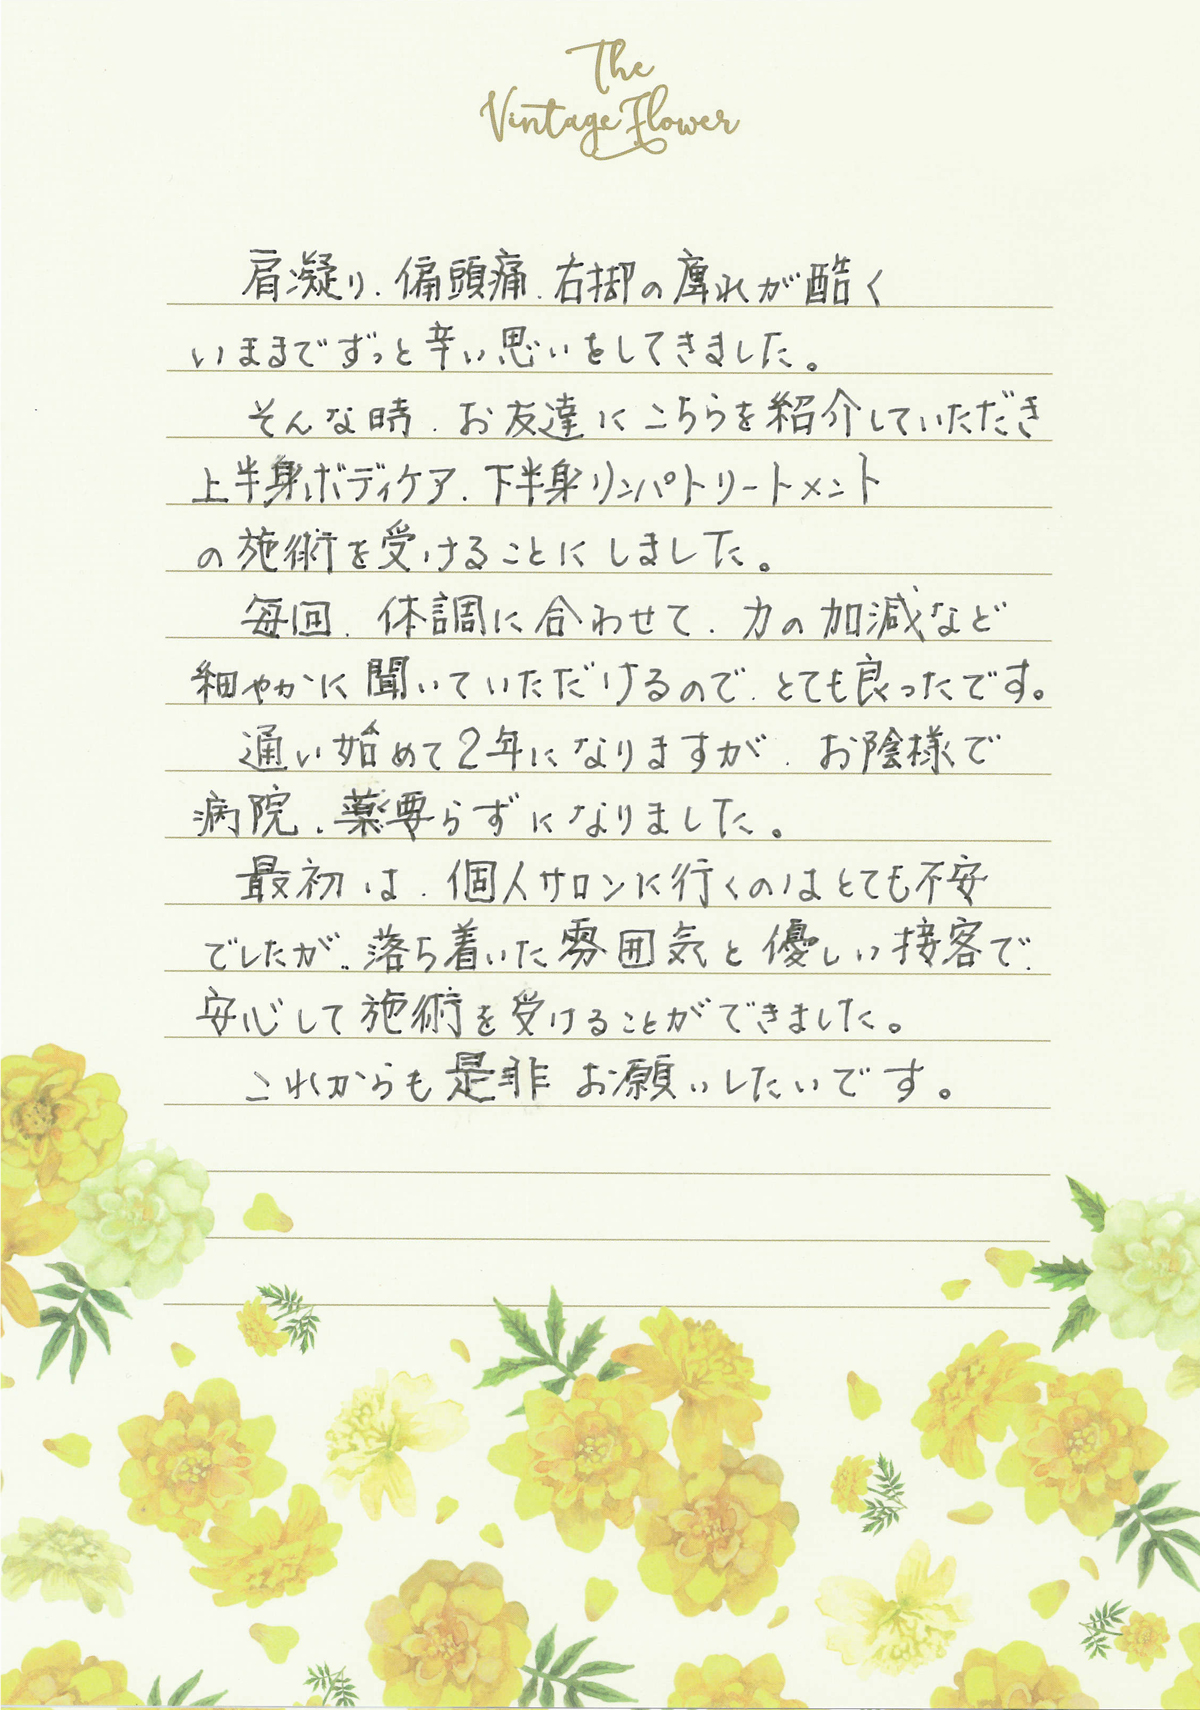 The
Vintage Flower
肩凝り、偏頭痛、右脚の痺れが酷く
いままでずっと辛い思いをしてきました。
そんな時、お友達にこちらを紹介していただき
上半身ボディケア、下半身リンパトリートメント
の施術を受けることにしました。
毎回、体調に合わせて、力の加減など
細やかに聞いていただけるので、とても良ったです。
通い始めて2年になりますが、お陰様で
病院、薬要らずになりました。
最初は、個人サロンに行くのはとても不安
でしたが、落ち着いた雰囲気と優しい接客で、
安心して施術を受けることができました。
これからも是非お願いしたいです。